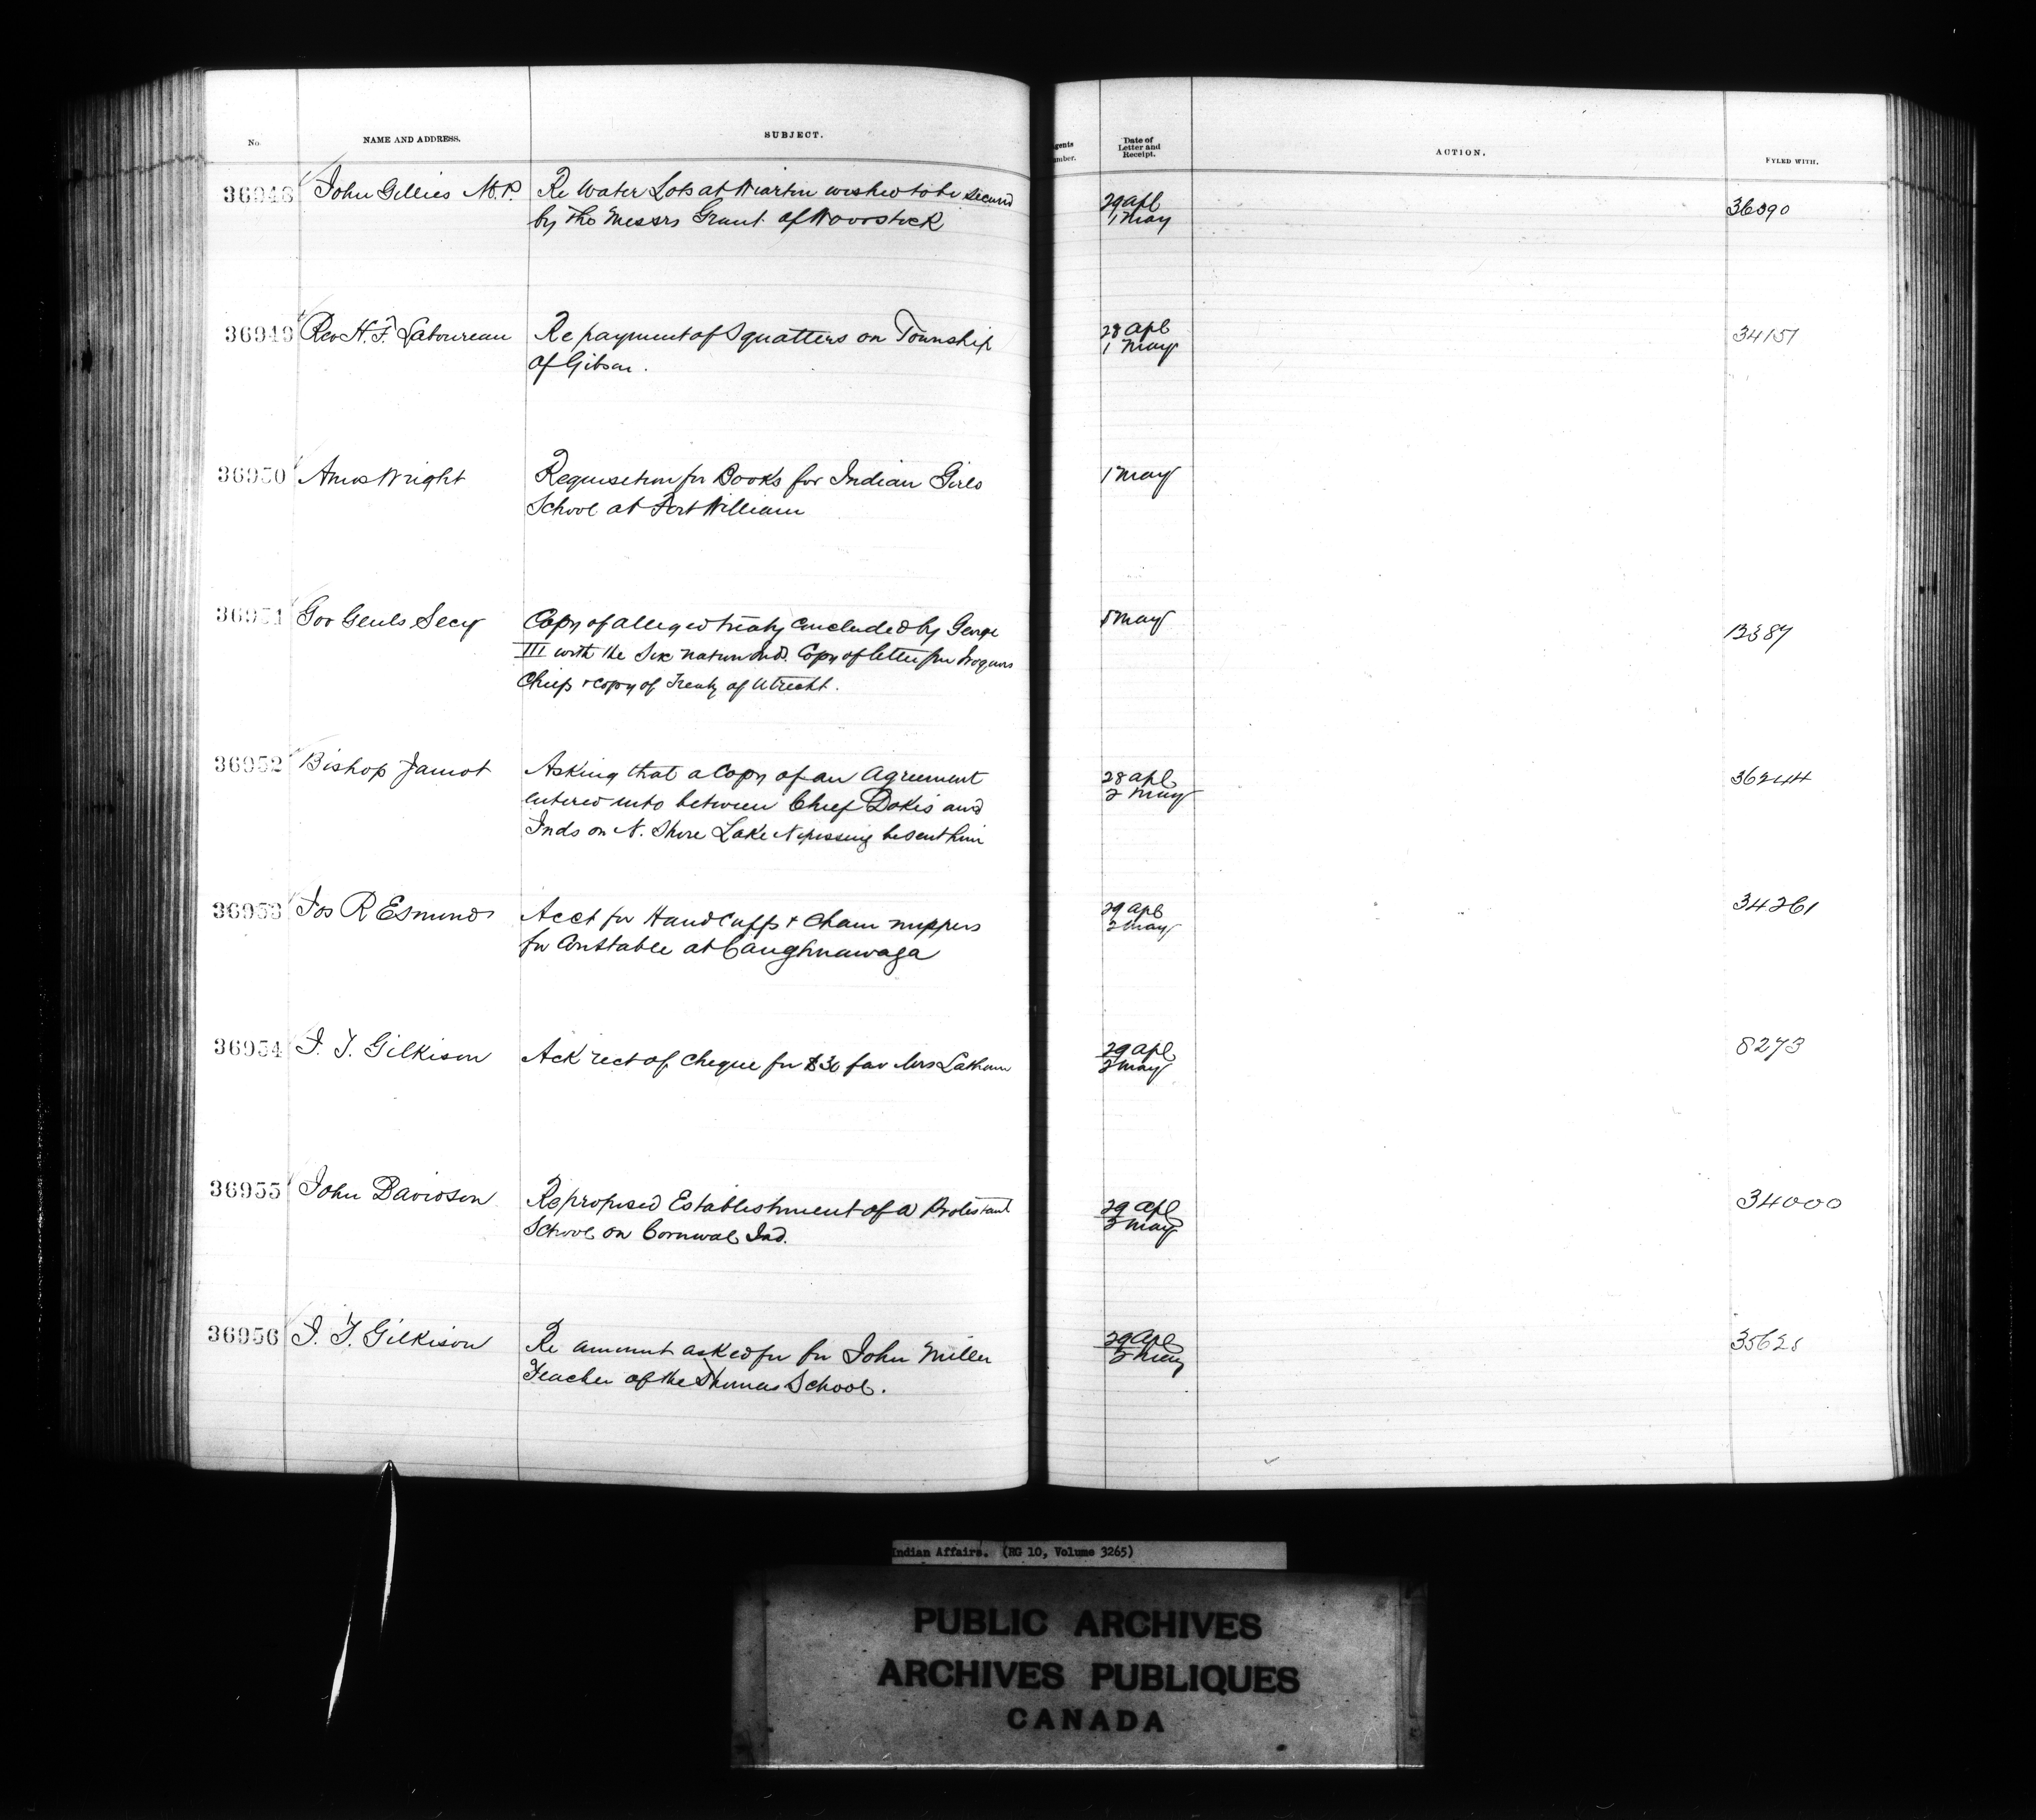 No. NAME AND ADDRESS. SUBJECT. gents umber. Date of Letter and Receipt. ACTION. FYLED WITH.
36948 John Gillies M.P. Re Water Lots at Wiarton wished to be secured 29 apl 36390
by the Messrs Grant of Woodstock 1 May
36949 Rev H. F. Laboureau Re payment of Squatters on Township 28 apl 34151
of Gibson. 1 May
36950 Amos Wright Requisition for Books for Indian Girls 1 May
School at Fort William
36951 Gov Genls Secy Copy of alleged treaty concluded by George May B387
III with the Six nation Inds. Copy of letter fm Iroquois
Chiefs & copy of Treaty of Utrecht.
36952 Bishop Jamot Asking that a Copy of an Agreement 28 apl 36244
entered into between Chief Dokis and 2 May
Inds on N. Shore Lake Nipissing be sent him
36953 Jos R Esmond Acct for Handcuffs & Chain nippers 29 apl 34261
for Constable at Caughnawaga 2 May
36954 J. T. Gilkison Ack rect of cheque for $30 fav Mrs Latham 29 apl 8273
2 May
36955 John Davidson Re proposed Establishment of a Protestant 29 apl 34000
School on Cornwal Ind. 2 May
36956 J. T. Gilkison Re amount asked for for John Miller 29 Apl
Teacher of the Thomas School. 2 May
Indian Affairs. (RG 10, Volume 3265)
PUBLIC ARCHIVES
ARCHIVES PUBLIQUES
CANADA